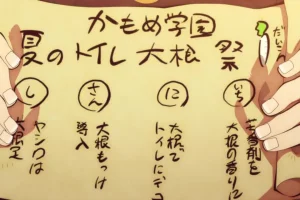 かもめ学園
夏のトイレ大根祭
だいこ
いち
芳香剤を
大根の香りに
に
大根で
トイレにデコ
さん
大根もっけ
導入
し
ヤシロは
大根足